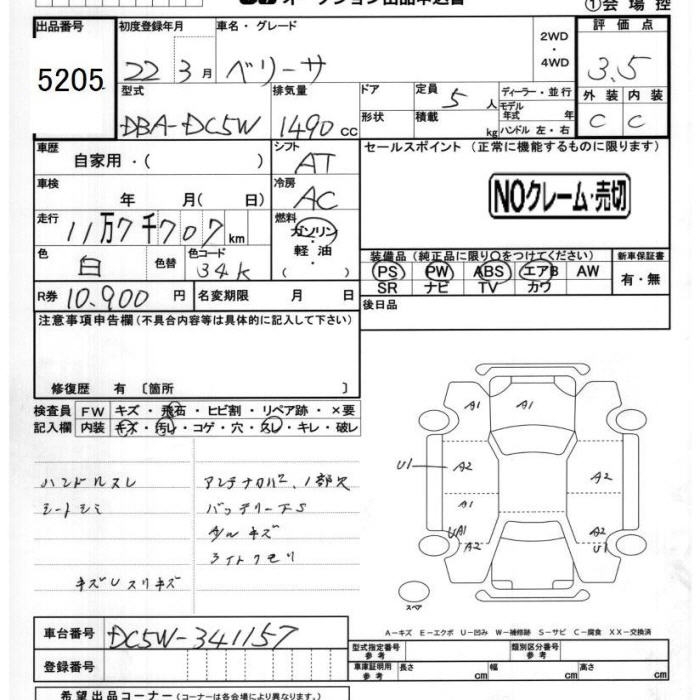 オークション出品申込書
①会場控
出品番号 初度登録年月 車名・グレード 2WD・4WD 評価点
5205 22 3月 ベリーサ 3.5
型式 排気量 ドア 定員 5人 ディーラー・並行 外装 内装
DBA-DC5W 1490cc 形状 積載 kg モデル年式 年 ハンドル 左・右 C C
車歴 自家用・( ) シフト AT セールスポイント (正常に機能するものに限ります)
車検 年 月( 日) 冷房 AC
NOクレーム・売切
走行 11万7千707km 燃料 ガソリン・軽油・( )
色 白 色替 色コード 34K
装備品 (純正品に限り○をつけてください) 新車保証書
PS PW ABS エアB AW 有・無
SR ナビ TV カワ
R券 10.900円 名変期限 月 日
後日品
注意事項申告欄(不具合内容等は具体的に記入して下さい)
修復歴 有〔箇所 〕
検査員 FW キズ・飛石・ヒビ割・リペア跡・×要
記入欄 内装 キズ・汚レ・コゲ・穴・スレ・キレ・破レ
ハンドルスレ アンテナ
シートシミ バッテリー
キズ
ライトクモリ
A1 A1
U1 A2 A2
A1
UA1 A2 A2 U1
スペア
A-キズ E-エクボ U-凹み W-補修跡 S-サビ C-腐食 XX-交換済
車台番号 DC5W-341157
型式指定番号 参考 類別区分番号 参考
登録番号
車庫証明用 参考 長さ cm 幅 cm 高さ cm
希望出品コーナー(コーナーは各会場により異なります。)